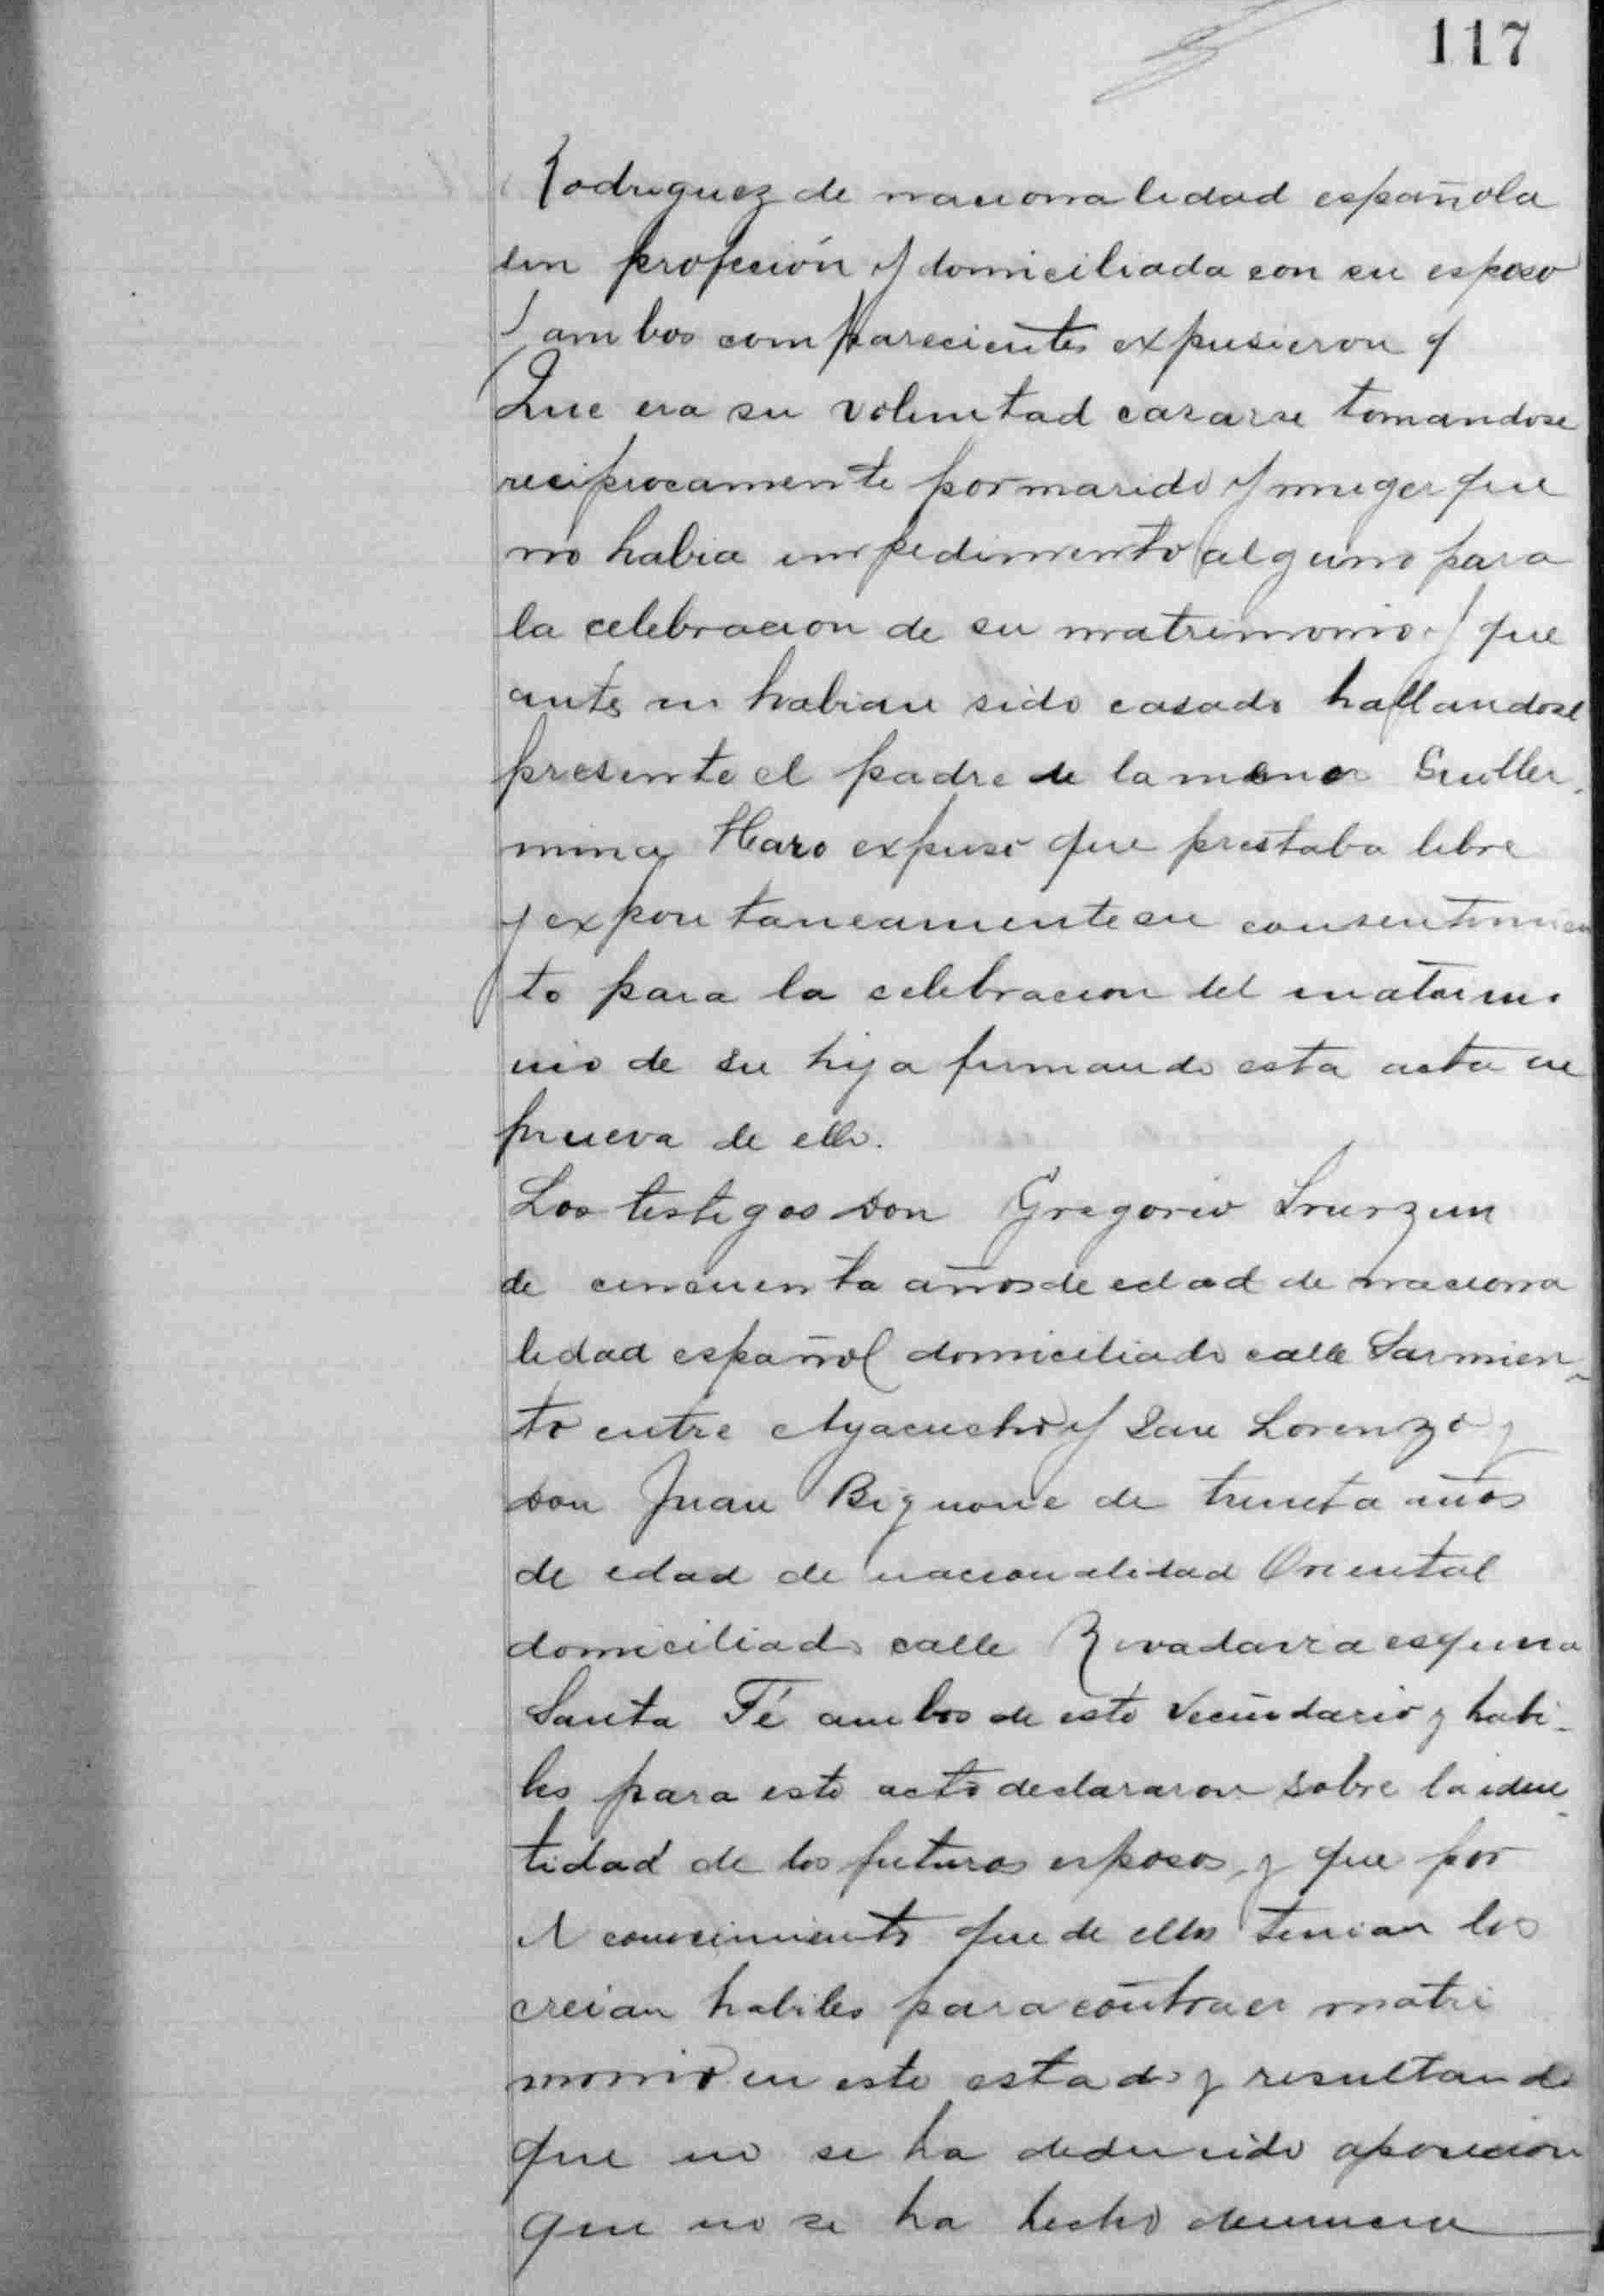 117
Rodriguez de nacionalidad española
sin profeción y domiciliada con su esposo
y ambos comparecientes expusieron y
Que era su voluntad casarse tomandose
reciprocamente por marido y muger que
no habia impedimento alguno para
la celebracion de su matrimonio y que
antes no habian sido casado hallandose
presente el padre de la menor Guiller-
mina Haro expuso que prestaba libre
y expontaneamente su consentimien
to para la celebracion del matrimo
nio de su hija firmando esta acta en
prueva de ello.
Los testigos don Gregorio Irurzun
de cincuenta años de edad de naciona
lidad español domiciliado calle Sarmien-
to entre Ayacucho y San Lorenzo y
don Juan Bignone de treinta años
de edad de nacionalidad Oriental
domiciliado calle Rivadavia esquina
Santa Fé ambos de este vecindario y habi-
les para este acto declararon sobre la iden-
tidad de los futuros esposos y que por
el conocimiento que de ellos tenian los
creian habiles para contraer matri
monio en este estado y resultando
que no se ha deducido oposicion
que no se ha hecho denuncia